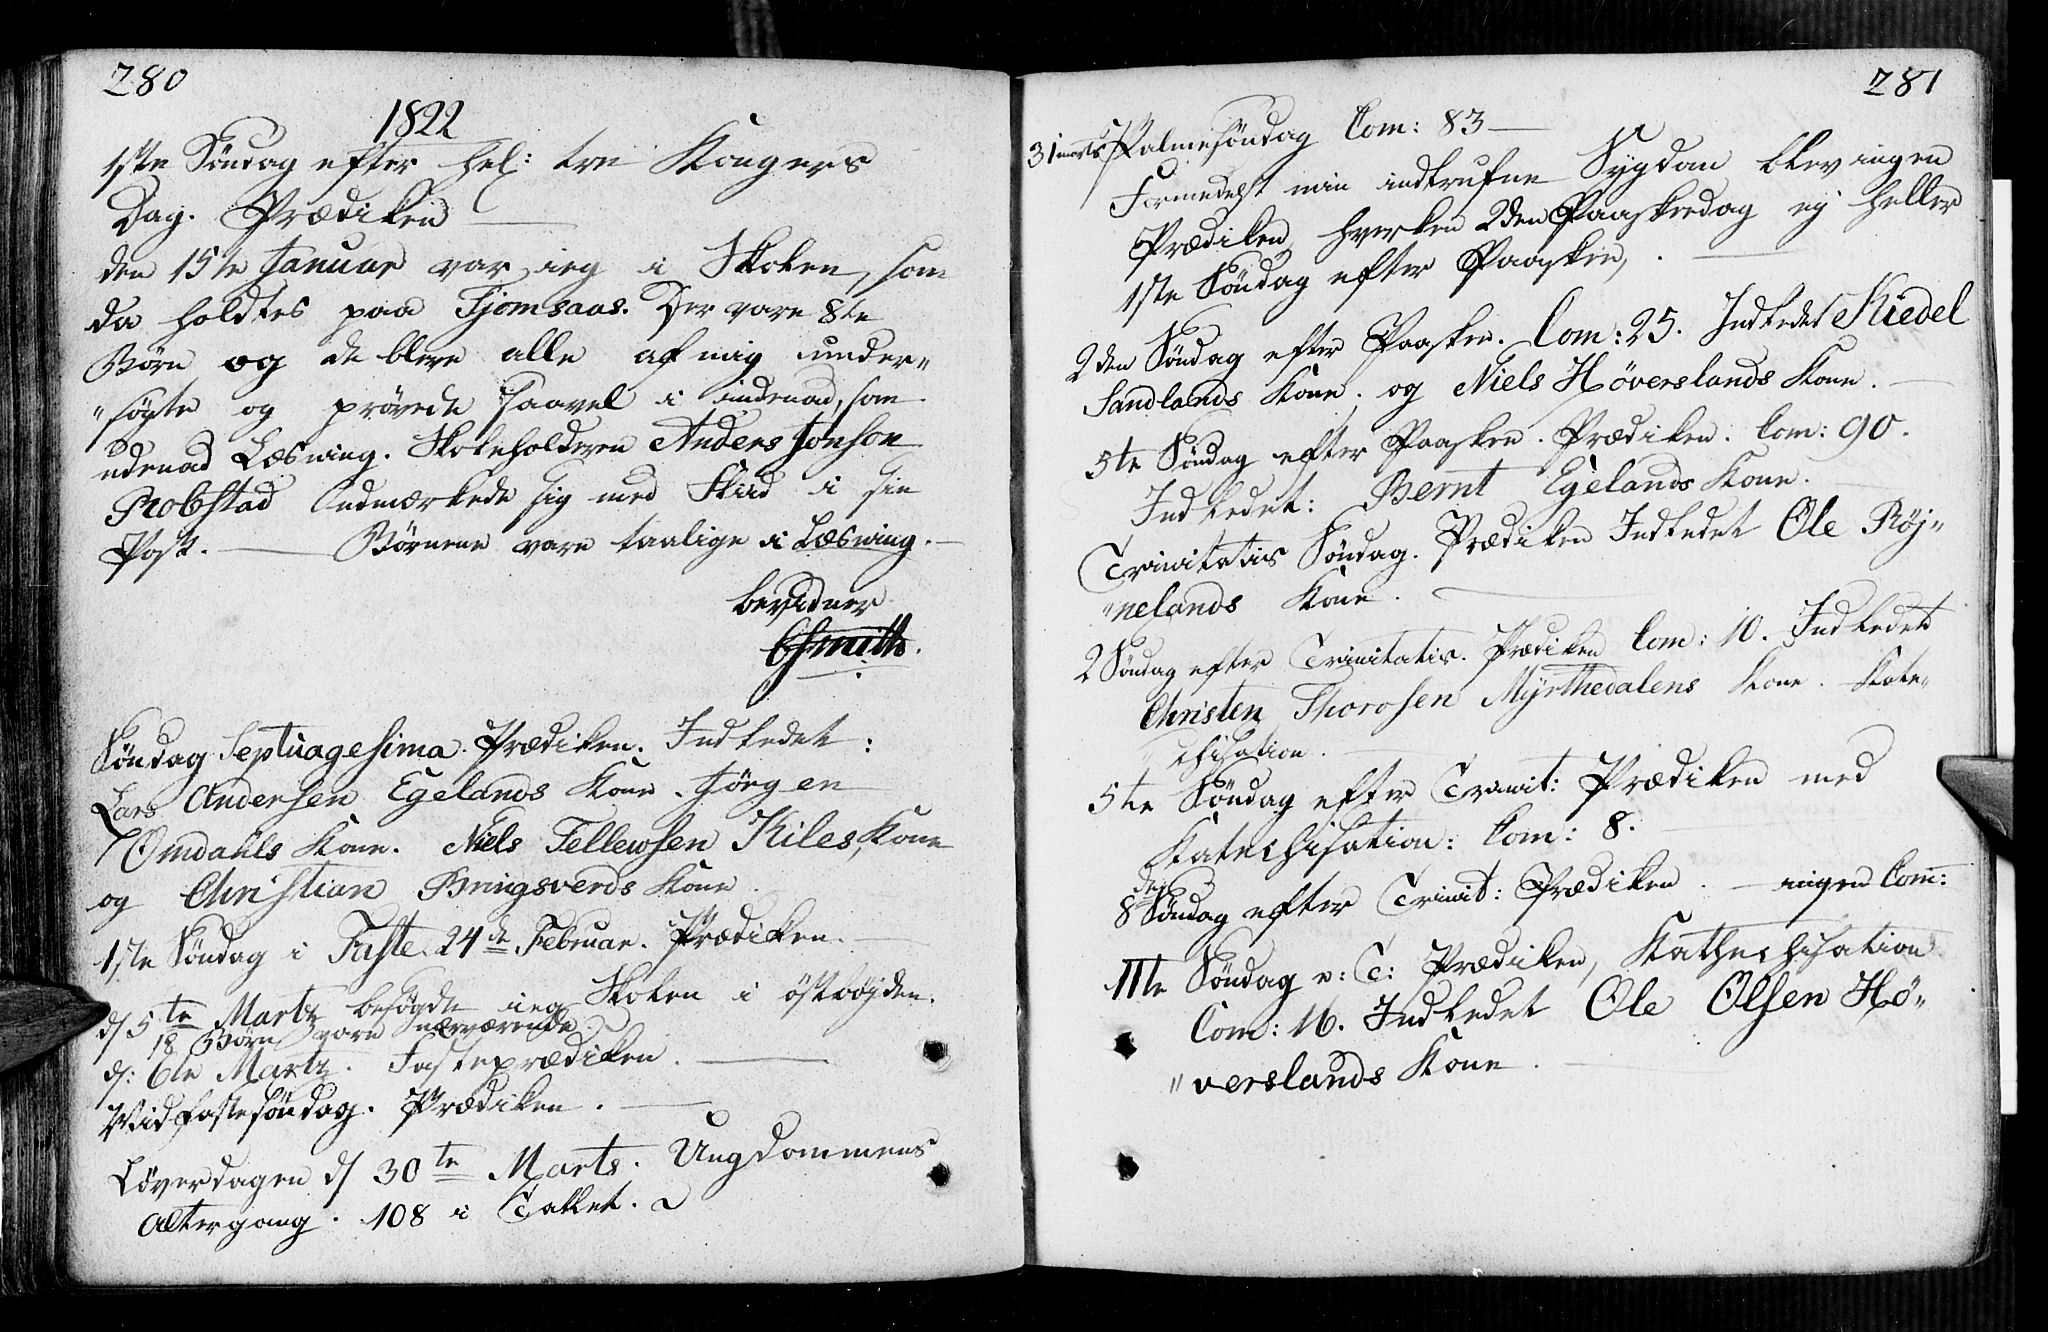 280
1822
1ste Søndag efter hel: tre Kongers
Dag. Prædiken
den 15te Januar var ieg i Skolen, som
da holdtes paa Tjomsaas. Der vare 8te
Børn og de bleve alle af mig under„
„søgte og prøvede saavel i indenad, som
udenad Læsning. Skoleholderen Anders Jonson
Robstad udmærkede sig med Fliid i sin
Post. — Børnene vare taalige i Læsning. —
bevidner
CSmith.
Søndag Septuagesima. Prædiken. Indledet:
Lars Andersen Egelands Kone. Jørgen
Omdahls Kone. Niels Tellewsen Kiles, Kone
og Christian Bringsverds Kone.
1ste Søndag i Faste. 24de Februar. Prædiken. —
d/ 5te Martz besøgde ieg Skolen i østrøgden.
18 Børn vare nærværende.
d: 6te Martz. Fasteprædiken. —
Midfastesøndag. Prædiken. —
Løverdagen d/ 30te Marts. Ungdommens
Altergang. 108 i Tallet.
281
31 marts Palmesøndag Com: 83 —
Formedelst min indtrufne Sygdom blev ingen
Prædiken, hverken 2den Paaskedag ej heller
1ste Søndag efter Paasken, . —
2den Søndag efter Paasken. Com: 25. Indledet Kiedel
Sandlands Kone. og Niels Høverslands Kone. —
5te Søndag efter Paasken. Prædiken. Com: 90.
Indledet: Bernt Egelands Kone. —
Trinitatis Søndag. Prædiken Indledet Ole Røj„
„nelands Kone. —
2 Søndag efter Trinitatis. Prædiken Com: 10. Indledet
Christen Thorosen Myrthedalens Kone. Kate„
„chisation. —
5te Søndag efter Trinit: Prædiken med
Katechisation: Com: 8. —
8de Søndag efter Trinit: Prædiken. — ingen Com:
11te Søndag e: T: Prædiken, Kathechisation
Com: 16. Indledet Ole Olsen Hø„
„verslands Kone. —